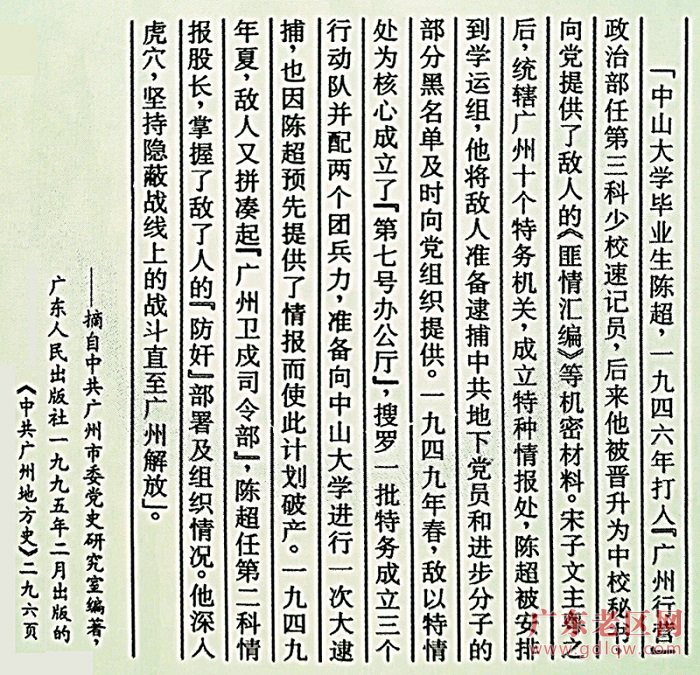 「中山大学毕业生陈超，一九四六年打入『广州行营』
政治部任第三科少校速记员，后来他被晋升为中校秘书，
向党提供了敌人的《匪情汇编》等机密材料。宋子文主粤之
后，统辖广州十个特务机关，成立特种情报处，陈超被安排
到学运组，他将敌人准备逮捕中共地下党员和进步分子的
部分黑名单及时向党组织提供。一九四九年春，敌以特情
处为核心成立了『第七号办公厅』，搜罗一批特务成立三个
行动队并配两个团兵力，准备向中山大学进行一次大逮
捕，也因陈超预先提供了情报而使此计划破产。一九四九
年夏，敌人又拼凑起『广州卫戍司令部』，陈超任第二科情
报股长，掌握了敌了人的『防奸』部署及组织情况。他深入
虎穴，坚持隐蔽战线上的战斗直至广州解放」。
——摘自中共广州市委党史研究室编著，
广东人民出版社一九九五年二月出版的
《中共广州地方史》二九六页
广东老区网
www.gdlqw.com